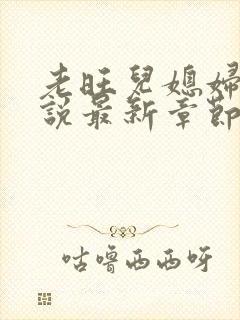 老旺兒媳婦
說最新章節
咕嚕西西呀